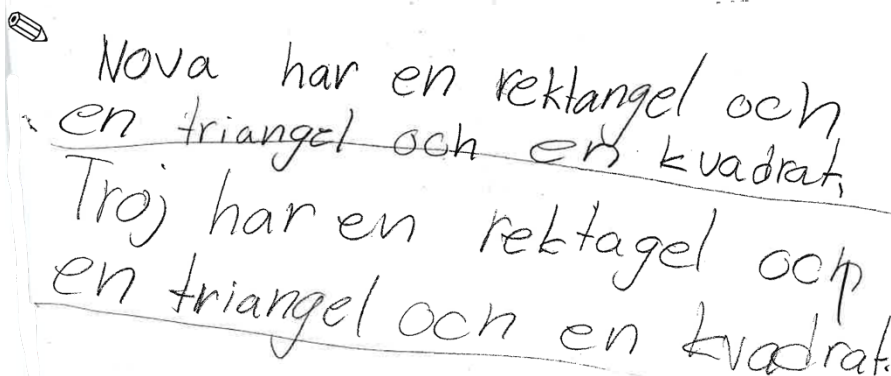 Nova har en rektangel och
en triangel och en kvadrat.
Troj har en rektagel och
en triangel och en kvadrat.